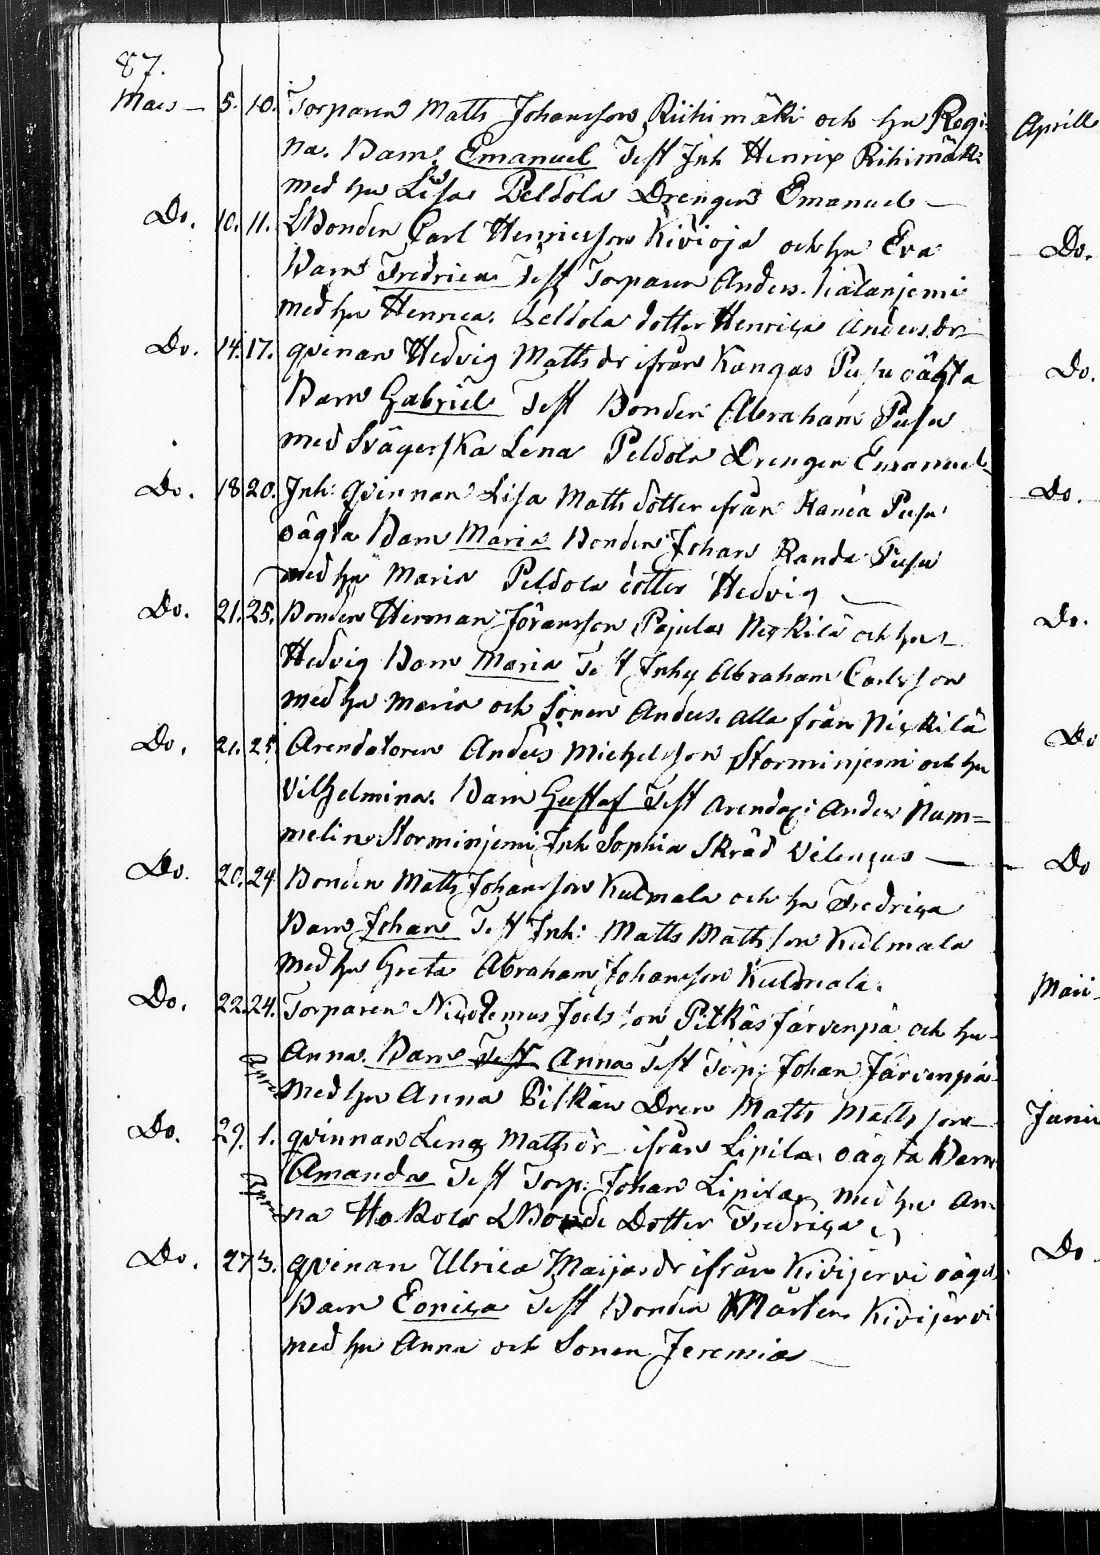 87.
Mars — 5. 10. Torparen Matts Johansson Riihimäki och hu Regi-
na. Barn. Emanuel Test Inh Henrix Rihimäki
med hu Lisa Peldola Drengen Emanuel —
Do. 10. 11. LBonden Carl Henricsson Kivioja och hu Eva
Barn Fredrica Test Torparen Anders
med hu Henrica. Peldola dotter Henrica Anders.dr
Do. 14. 17. qvinan Hedvig Matts dr ifrån Kangas Pusu oägta
Barn Gabriel Test Bonden Abraham Pusu
med Svägerska Lena Peldola Drengen Emanuel
Do. 18 20. Inh: qvinnan Lisa Matts dotter ifrån Pusu
oägta Barn Maria Bonden Johan Randa Pusu
med hu Maria Peldola dotter Hedvig —
Do. 21. 25. Bonden Herman Jöransson Pajula Niskilä och hu
Hedvig Barn Maria Test Inhy Abraham Carlsson
med hu Maria och Sonen Anders. alla från Niskilä
Do. 21. 25 Arendatoren Anders Michelsson Storminjemi och hu
Vilhelmina. Barn Gustaf Test Arendat: Anders Num=
melin Storminjemi Inh Sophia Skräd —
Do. 20. 24 Bonden Matts Johansson Kulmala och hu Fredrica
Barn Johan Test Inh: Matts Mattsson Kulmala
med hu Greta Abraham Johansson Kulmala.
Do. 22. 24. Torparen Nicodemus Joelsson Pitkäs Järvenpä och hu
Anna. Barn Test Anna Test Torp: Johan Järvenpä
April med hu Anna Pitkäs Dren Matts Mattsson
Do. 29. 1. qvinnan Lena Matts dr ifrån Lipila. oägta Barn
Amanda Test Torp: Johan Lipila, med hu An-
April na Hokola LBonde Dotter Fredrica
Do. 27 3. qvinan Ulrica Maijas dr ifrån Kivijervi oägt
Barn Eonica Test Bonden Mårten Kivijervi
med hu Anna och Sonen Jeremias —
Aprill
Do.
Do.
Do.
Do.
Do
Do
Maii
Junii
Do